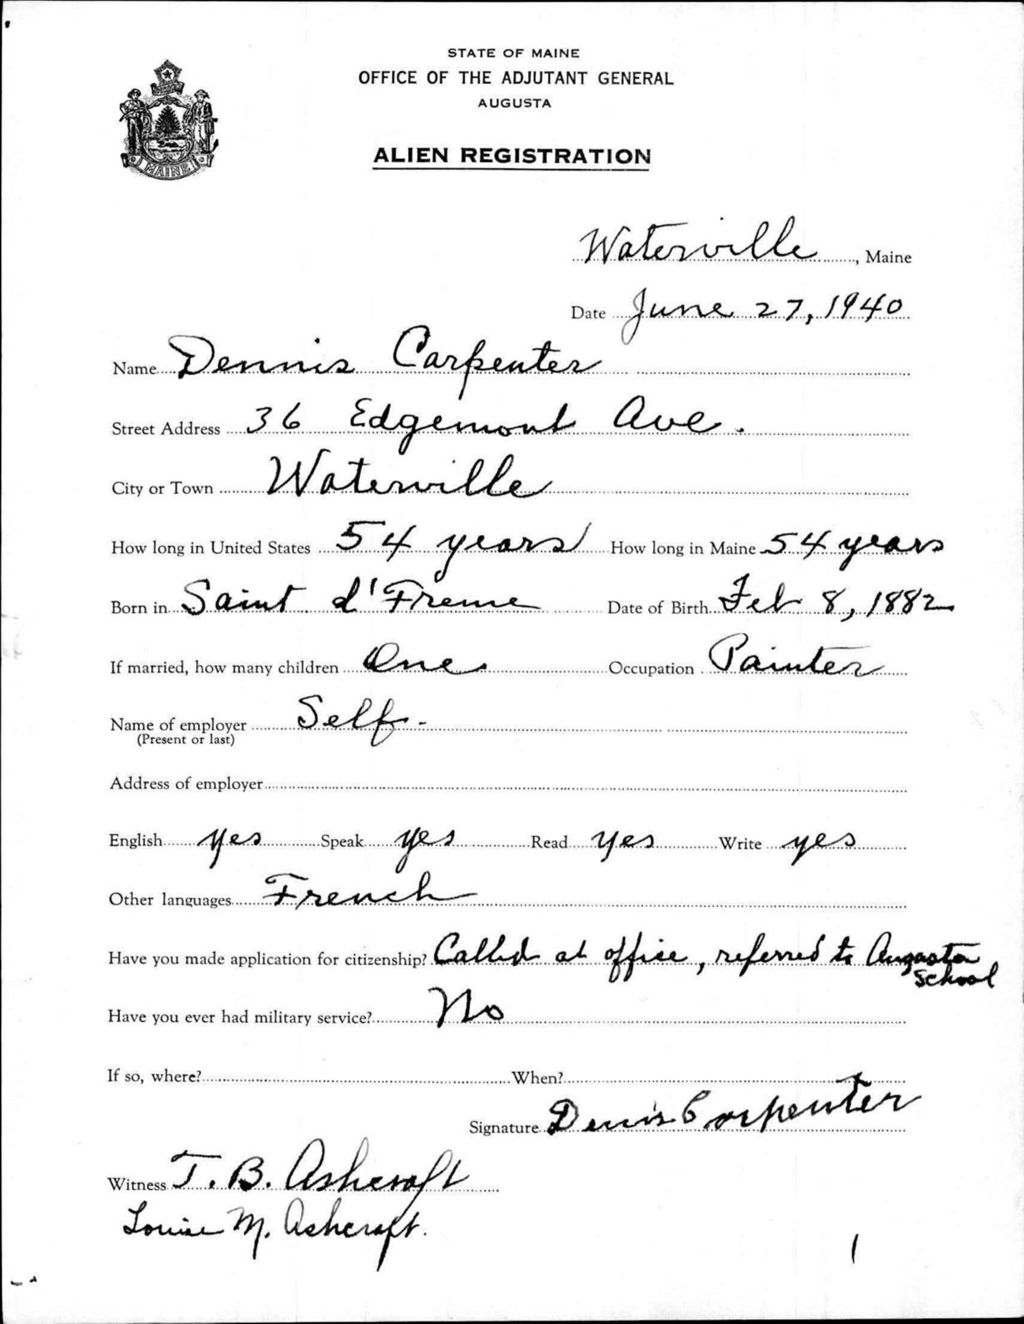 STATE OF MAINE
OFFICE OF THE ADJUTANT GENERAL
AUGUSTA
ALIEN REGISTRATION
MAINE
Waterville, Maine
Date June 27, 1940
Name Dennis Carpenter
Street Address 36 Edgemont Ave.
City or Town Waterville
How long in United States 54 years How long in Maine 54 years
Born in Saint d'Freme Date of Birth Feb 8, 1882
If married, how many children One Occupation Painter
Name of employer Self-
(Present or last)
Address of employer
English yes Speak yes Read yes Write yes
Other languages French
Have you made application for citizenship? Called at office, referred to Augusta
School
Have you ever had military service? No
If so, where? When?
Signature Denis Carpenter
Witness T. B. Ashcraft
Louise M. Ashcraft.
1